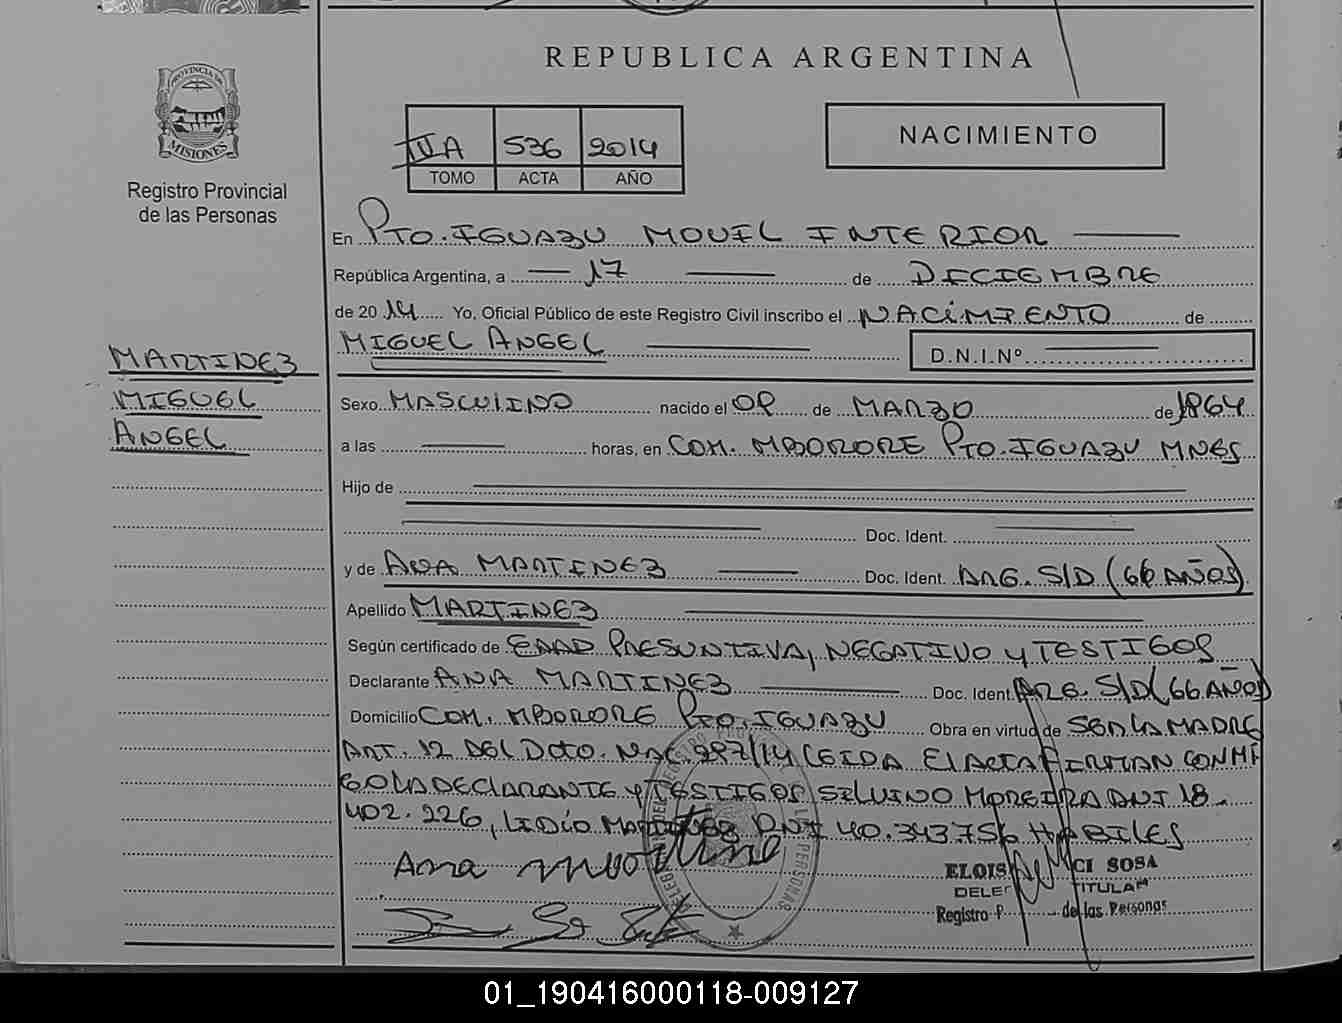 REPUBLICA ARGENTINA
PROVINCIA DE
MISIONES
Registro Provincial
de las Personas
III A 536 2014
TOMO ACTA AÑO
NACIMIENTO
En PTO. IGUAZU MOVIL INTERIOR
República Argentina, a 17 de DICIEMBRE
de 2014 Yo, Oficial Público de este Registro Civil inscribo el NACIMIENTO de
MIGUEL ANGEL D.N.I.Nº
MARTINEZ
MIGUEL
ANGEL
Sexo MASCULINO nacido el 08 de MARZO de 1864
a las horas, en COM. MBORORE PTO. IGUAZU MNES
Hijo de
Doc. Ident.
y de ANA MARTINEZ Doc. Ident. ARG. S/D (66 AÑOS)
Apellido MARTINEZ
Según certificado de EDAD PRESUNTIVA, NEGATIVO Y TESTIGOS
Declarante ANA MARTINEZ Doc. Ident. ARG. S/D (66 AÑOS)
Domicilio COM. MBORORE PTO. IGUAZU Obra en virtud de SER LA MADRE
ART. 12 DEL DCTO. NAC. 297/14 LEIDA EL ACTA FIRMAN CONMI
GO LA DECLARANTE Y TESTIGOS SILVINO MOREIRA DNI 18.
402.226, LIDIO MARTINEZ DNI 40.343756 HABILES
Ana
ELOIS CI SOSA
DELE TITULAR
Registro P de las Personas
01_190416000118-009127